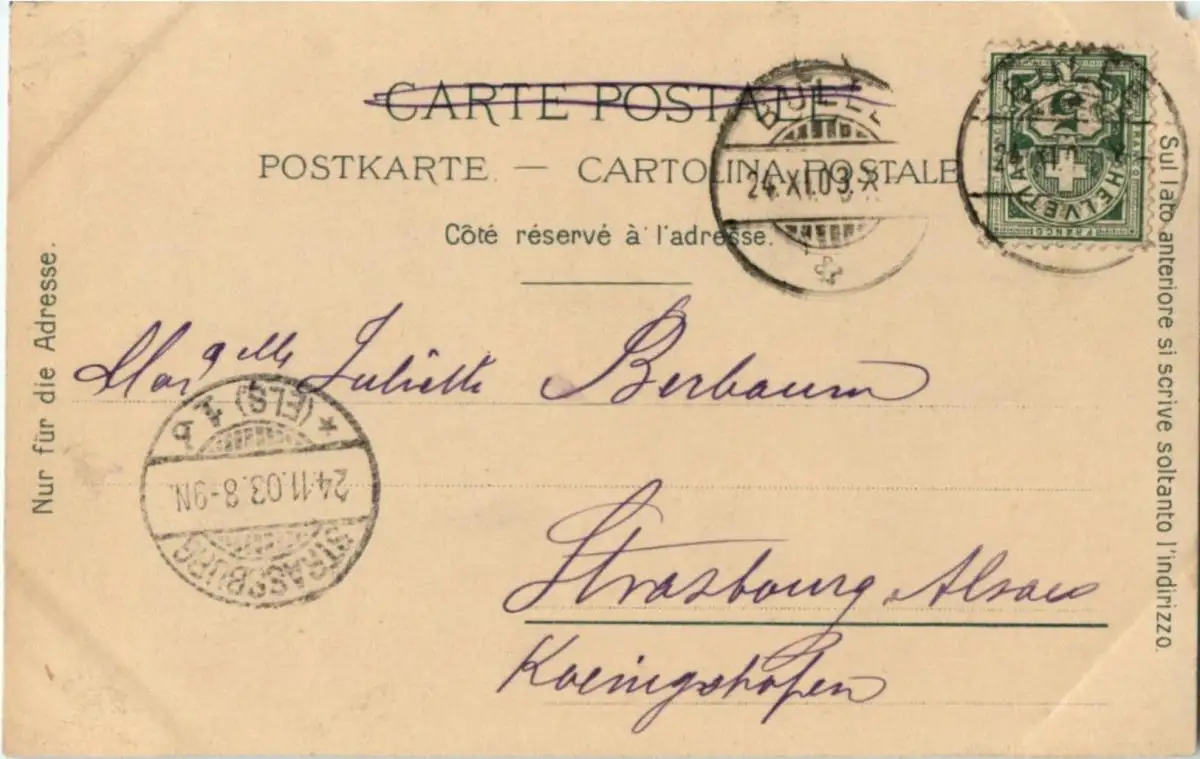 CARTE POSTALE
POSTKARTE — CARTOLINA POSTALE
Côté réservé à l'adresse.
Nur für die Adresse.
Sul lato anteriore si scrive soltanto l'indirizzo.
BULLE
24.XI.03.X
HELVETIA
FRANCO
Juliette Berbaum
STRASSBURG
24.11.03.8-9N.
* (ELS) 4. b
Strasbourg Alsace
Koenigshofen